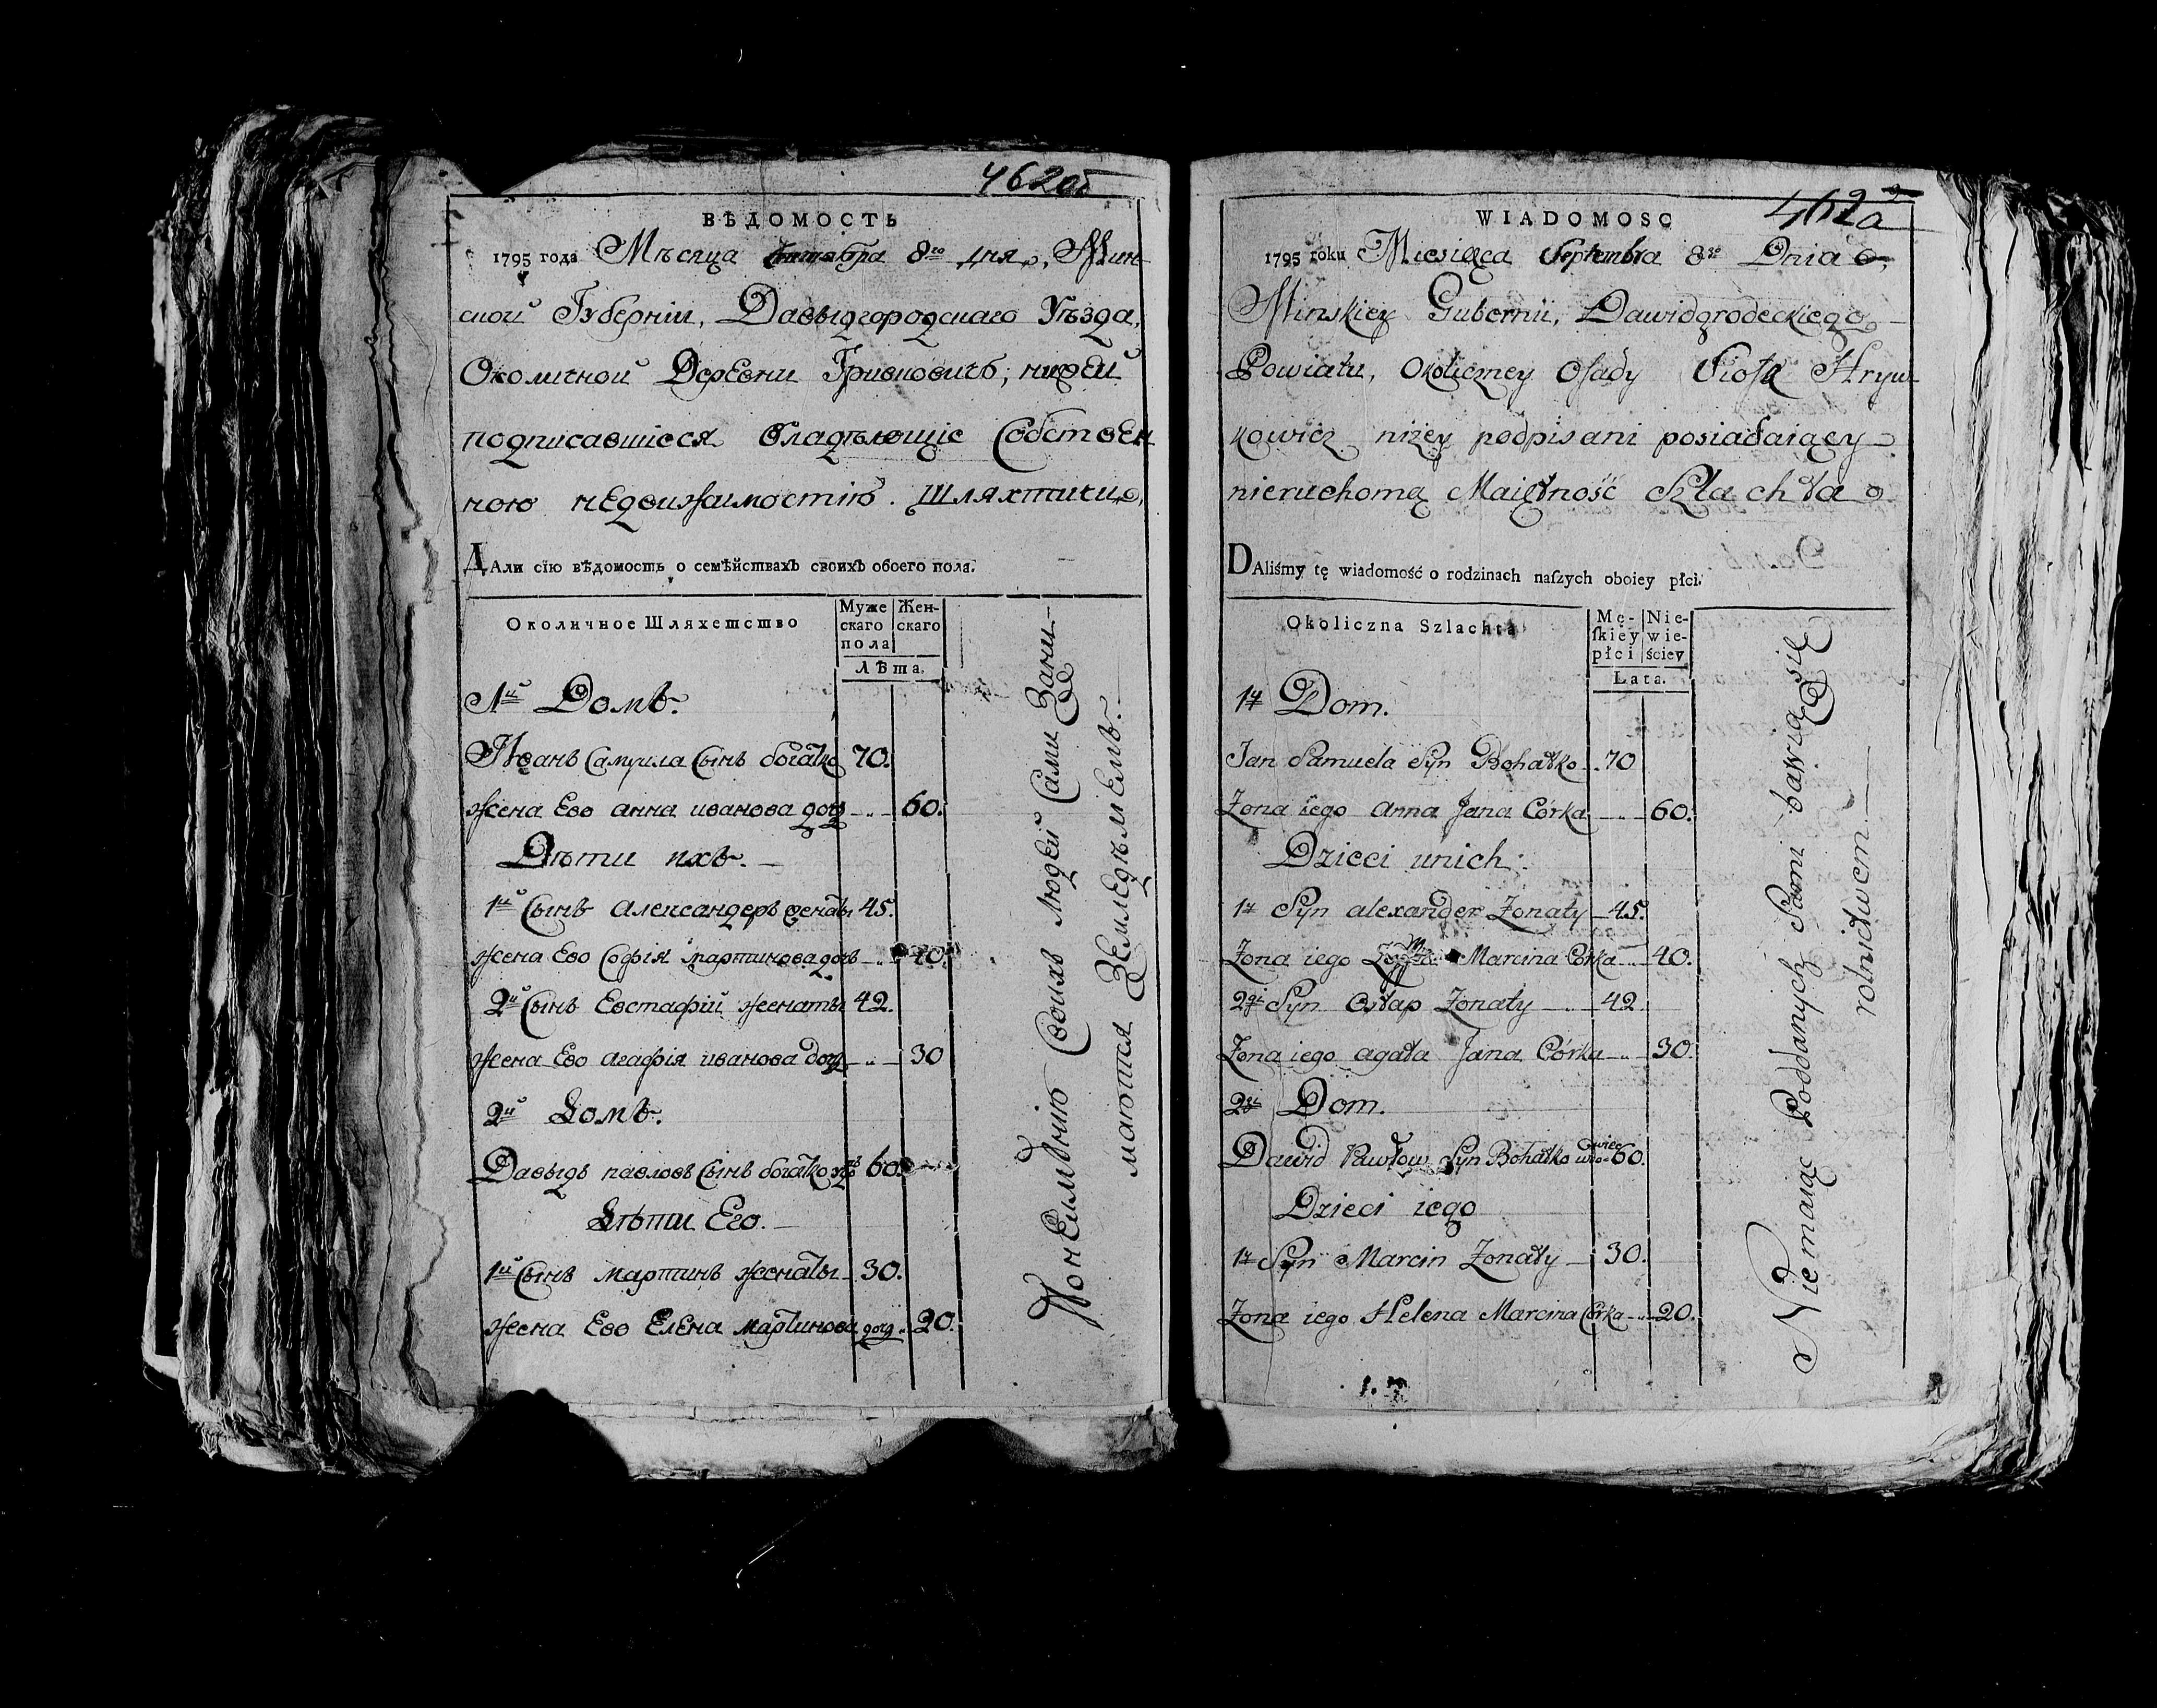 462об
ВѢДОМОСТЬ
1795 года Мѣсяца Сентября 8го дня, Мин-
ской Губерніи, Давыдгородскаго Уѣзда,
Околичной Деревни Гривковичъ, нижей
подписавшіеся Владѣющіе Собствен
ною недвижимостію Шляхтичи,
ДАли сїю вѣдомость о семѣйствахъ своихъ обоего пола.
Околичное Шляхетство
Муже
скаго
пола
Жен-
скаго
Лѣта.
1й Домъ.
Иванъ Самуила Сынъ богатко 70.
жена Ево анна иванова дочь 60.
Дѣти ихъ.
1й Сынъ Александеръ женаты 45.
жена Ево Софія мартинова дочь 40.
2й Сынъ Евстафій женаты 42.
жена Ево агафія иванова дочь 30
2й Домъ.
Давыдъ павловъ Сынъ богатко 60.
Дѣти Его.
1й Сынъ мартинъ женаты 30.
жена Ево Елена мартинова дочь 20.
Понеимѣнію Своихъ людей Сами Зани-
маются Земледѣлиемъ.
462а
WIADOMOSC
1795 roku Miesiąca Septembra 8go Dnia
Minskiey Gubernii, Dawidgrodeckiego
Powiatu, Okoliczney Osady Hryw-
kowicz niżey podpisani posiadaiący
nieruchomą Maiętność Szlachta
DAliśmy tę wiadomość o rodzinach naſzych oboiey płci.
Okoliczna Szlachta
Mę-
ſkiey
płci
Nie-
wie-
ściey
Lata.
1y Dom.
Jan Samuela Syn Bohatko 70
Żona iego Anna Jana Córka 60.
Dzieci unich:
1y Syn alexander Żonaty 45.
Żona iego Marcina Córka 40.
2gi Syn Ostap Żonaty 42
Żona iego agata Jana Córka 30.
2gi Dom.
Dawid Pawłow Syn Bohatko wdowiec 60.
Dzieci iego
1y Syn Marcin Żonaty 30.
Żona iego Helena Marcina Córka 20.
Nie maiąc Poddanych Sami bawią się
rolnictwem